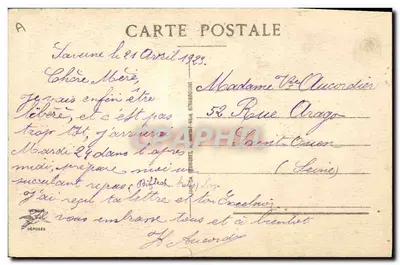 A
CARTE POSTALE
le 21 Avril 1923
Chère Mère,
Je vais enfin être
libéré, et c'est pas
trop tôt, j'arrive
Mardi 24 dans l'après
midi, prépare moi un
succulant repas
J'ai reçu ta lettre et ton
vous embrasse tous et à bientôt
Madame Vve Aucordier
52 Rue Arago
Saint Ouen
(Seine)
DÉPOSÉE